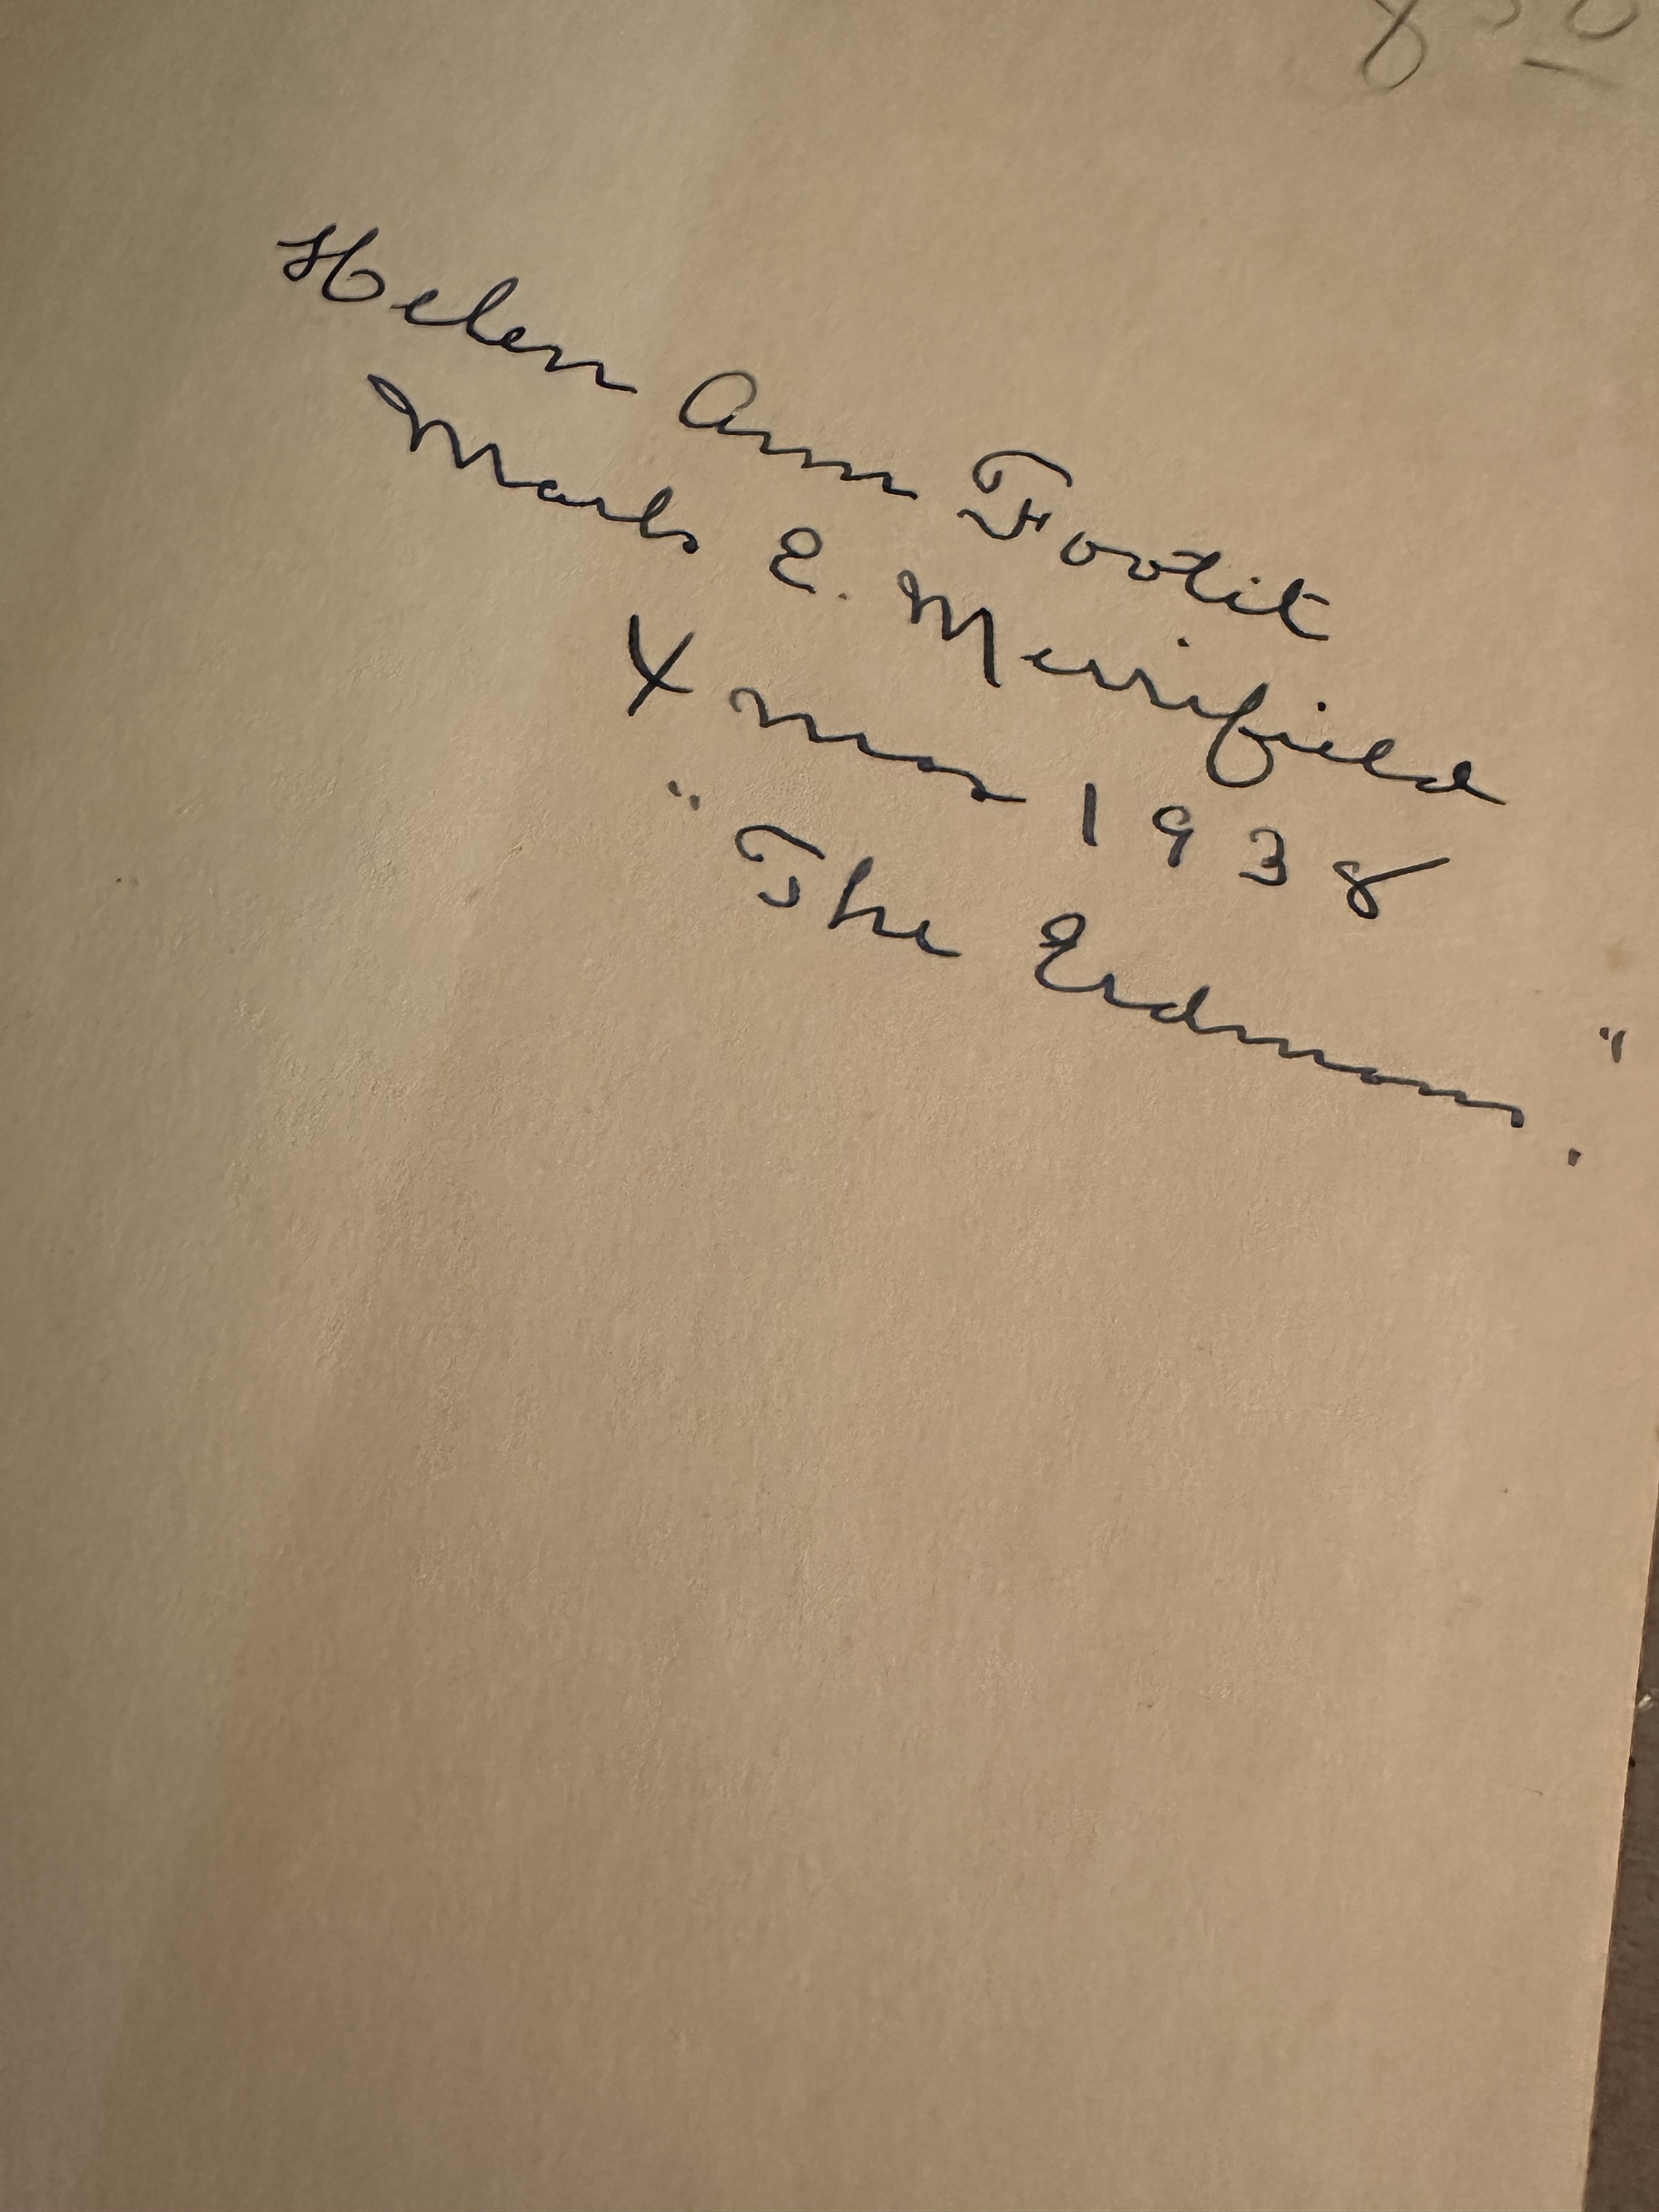 850
Helen Ann Footit
Mark E. Merrifield
Xmas 1938
"The Erdmans."